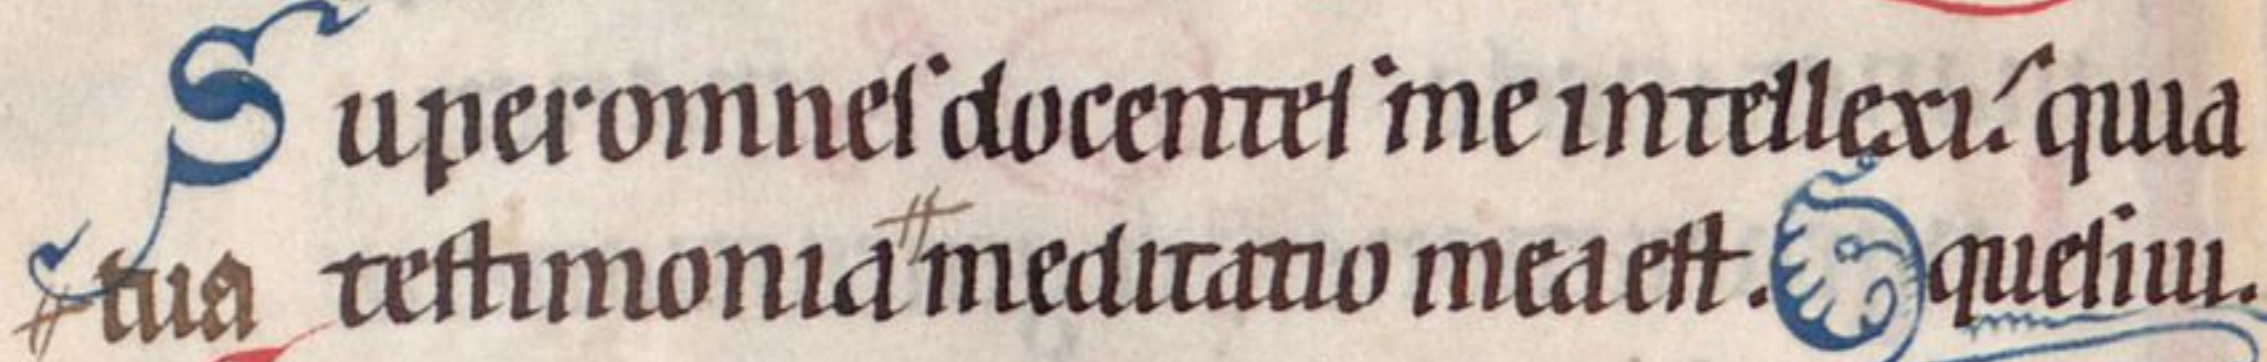 Super omnes docentes me intellexi: quia
tua testimonia meditatio mea est. quesiui.